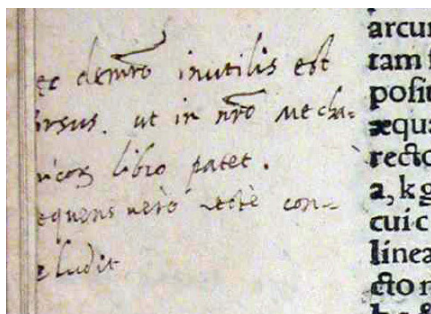 ec demr̃o inutilis est
rsus. ut in nr̃o Mecha-
nicoꝝ libro patet.
equens vero recte con-
cludit
arcur
tam f
positu
æqua
recto
a, k g
cui c
linea
cto n